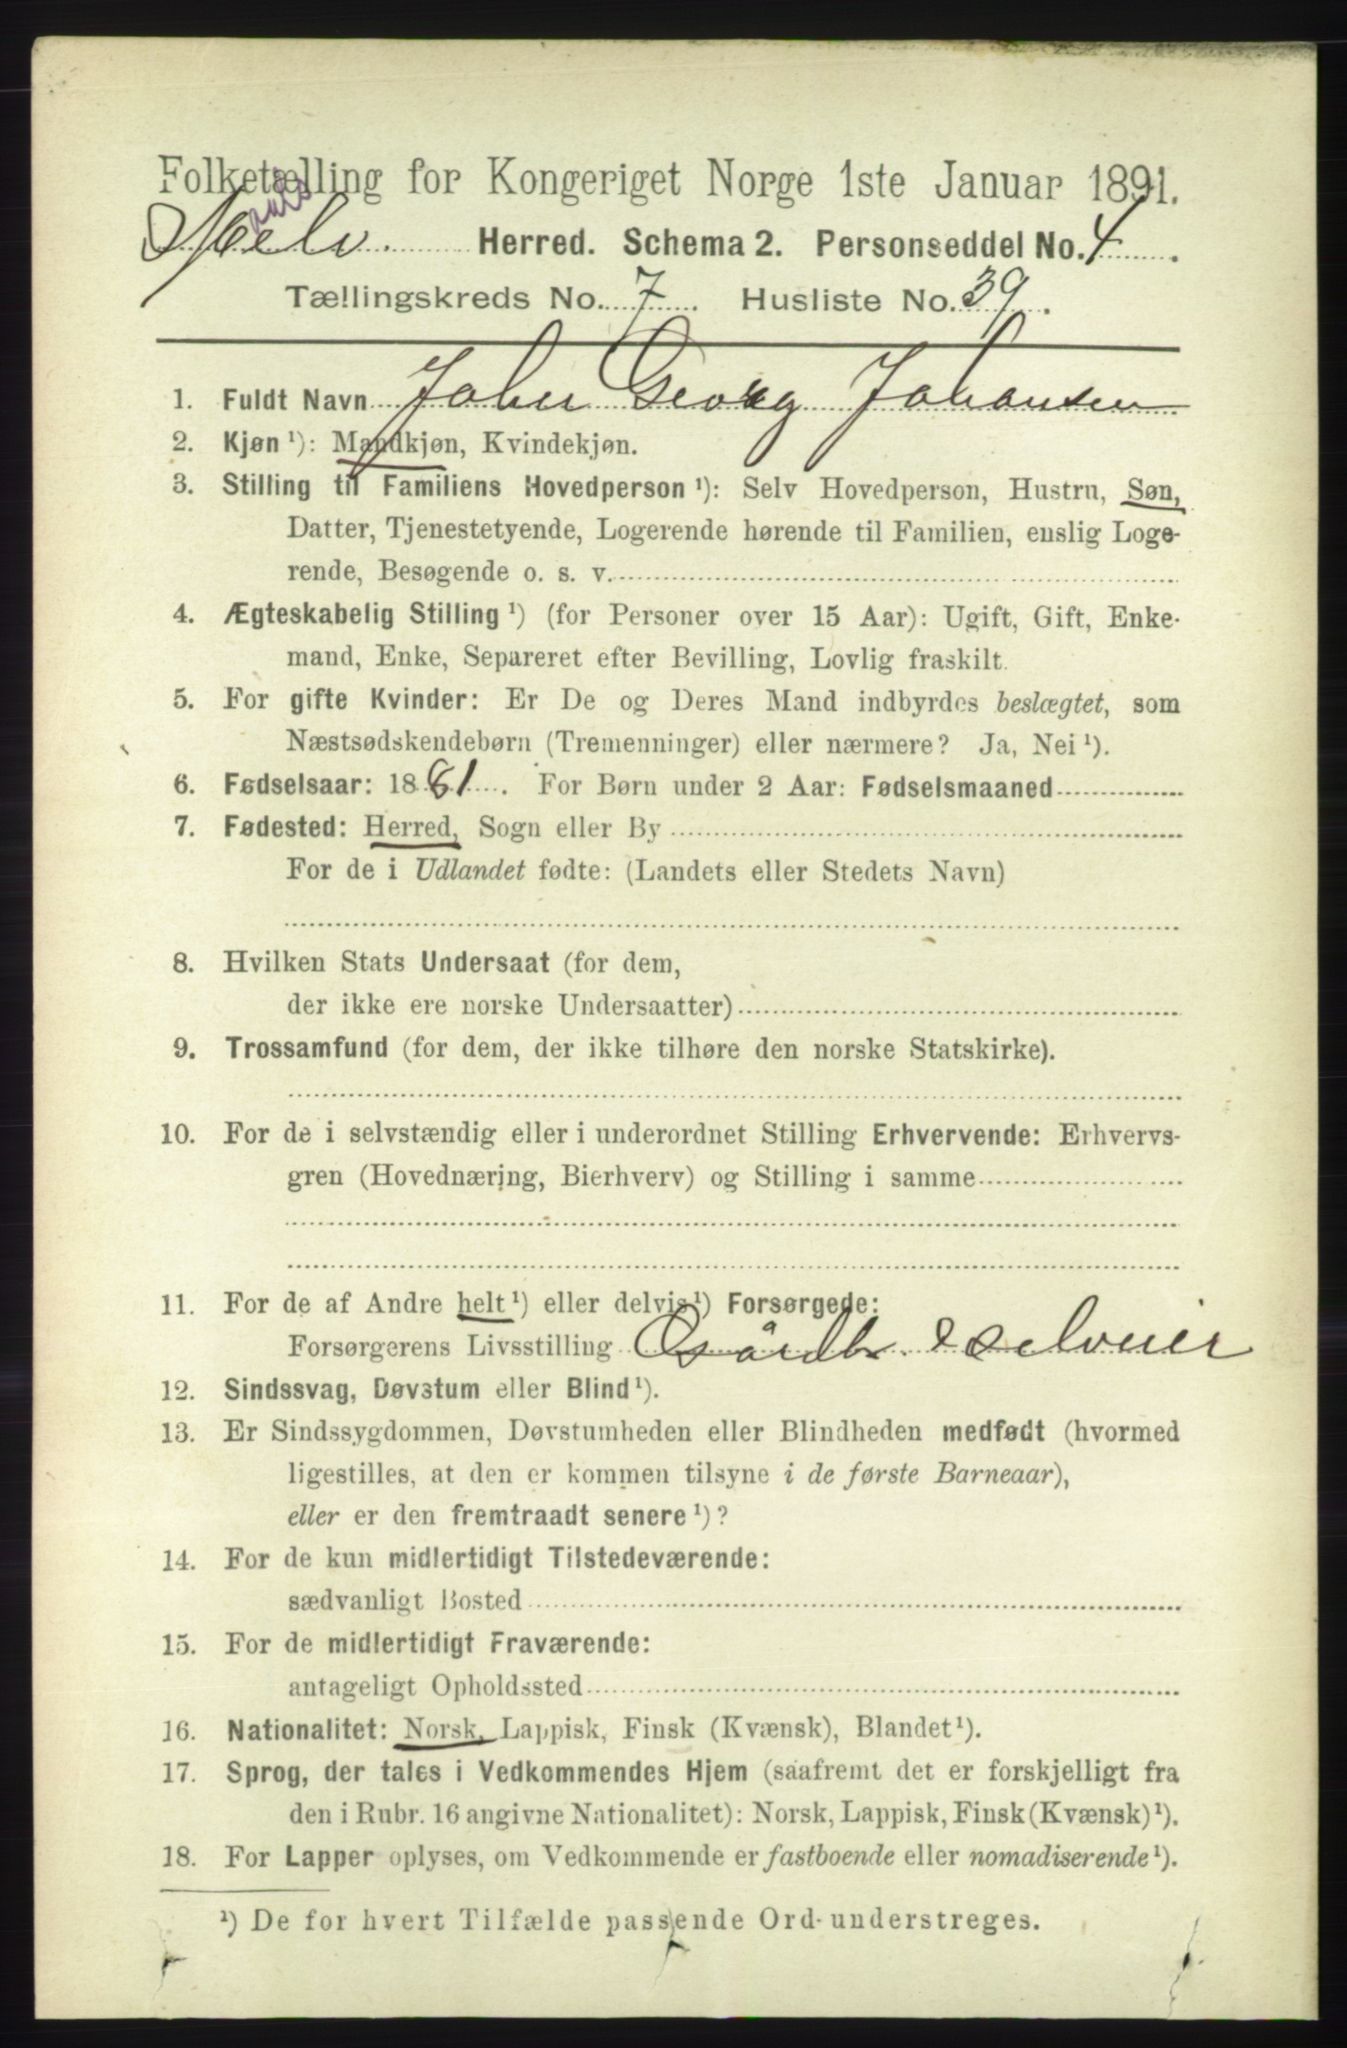 Folketælling for Kongeriget Norge 1ste Januar 1891.
Herred. Schema 2. Personseddel No. 4.
Tællingskreds No. 7. Husliste No. 39.
1. Fuldt Navn Johan Georg Johansen
2. Kjøn ¹): Mandkjøn, Kvindekjøn.
3. Stilling til Familiens Hovedperson ¹): Selv Hovedperson, Hustru, Søn,
Datter, Tjenestetyende, Logerende hørende til Familien, enslig Loge-
rende, Besøgende o. s. v.
4. Ægteskabelig Stilling ¹) (for Personer over 15 Aar): Ugift, Gift, Enke-
mand, Enke, Separeret efter Bevilling, Lovlig fraskilt.
5. For gifte Kvinder: Er De og Deres Mand indbyrdes beslægtet, som
Næstsødskendebørn (Tremenninger) eller nærmere? Ja, Nei ¹).
6. Fødselsaar: 1881. For Børn under 2 Aar: Fødselsmaaned
7. Fødested: Herred, Sogn eller By
For de i Udlandet fødte: (Landets eller Stedets Navn)
8. Hvilken Stats Undersaat (for dem,
der ikke ere norske Undersaatter)
9. Trossamfund (for dem, der ikke tilhøre den norske Statskirke).
10. For de i selvstændig eller i underordnet Stilling Erhvervende: Erhvervs-
gren (Hovednæring, Bierhverv) og Stilling i samme
11. For de af Andre helt ¹) eller delvis ¹) Forsørgede:
Forsørgerens Livsstilling Gårdbr. & selveier
12. Sindssvag, Døvstum eller Blind ¹).
13. Er Sindssygdommen, Døvstumheden eller Blindheden medfødt (hvormed
ligestilles, at den er kommen tilsyne i de første Barneaar),
eller er den fremtraadt senere ¹)?
14. For de kun midlertidigt Tilstedeværende:
sædvanligt Bosted
15. For de midlertidigt Fraværende:
antageligt Opholdssted
16. Nationalitet: Norsk, Lappisk, Finsk (Kvænsk), Blandet ¹).
17. Sprog, der tales i Vedkommendes Hjem (saafremt det er forskjelligt fra
den i Rubr. 16 angivne Nationalitet): Norsk, Lappisk, Finsk (Kvænsk) ¹).
18. For Lapper oplyses, om Vedkommende er fastboende eller nomadiserende ¹).
¹) De for hvert Tilfælde passende Ord understreges.